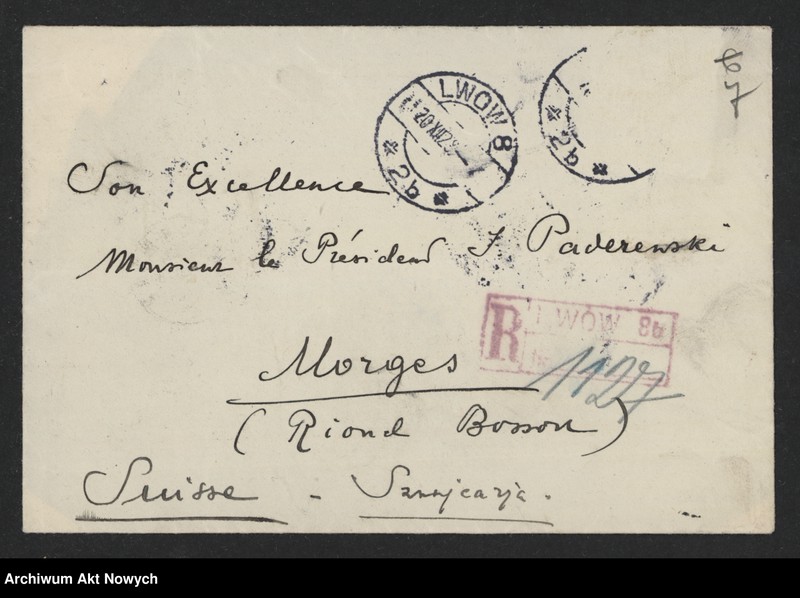 67
LWÓW 8
* 2b *
* 2b *
Son Excellence
Monsieur le Président J Paderewski
R
LWÓW 8b
1127
Morges
(Riond Bosson)
Suisse - Szwajcarja.
Archiwum Akt Nowych